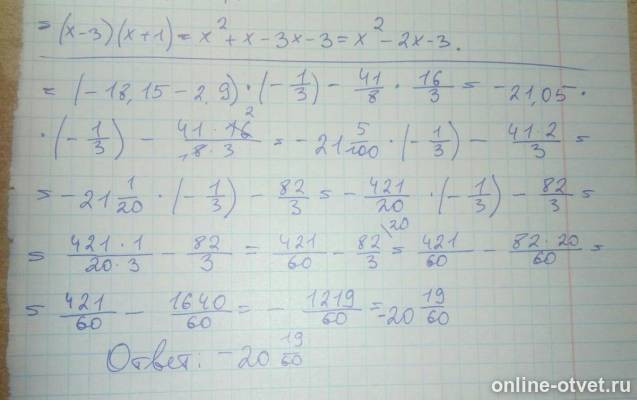 = (x-3)(x+1) = x² + x - 3x - 3 = x² - 2x - 3.
= (-18,15 - 2,9) · (-1/3) - 41/8 · 16/3 = -21,05 ·
· (-1/3) - 41·16 2/1 8·3 = -21 5/100 · (-1/3) - 41·2/3 =
= -21 1/20 · (-1/3) - 82/3 = -421/20 · (-1/3) - 82/3 =
= 421·1/20·3 - 82/3 = 421/60 - 82/3 \20 = 421/60 - 82·20/60 =
= 421/60 - 1640/60 = - 1219/60 = -20 19/60
Ответ: -20 19/60
online-otvet.ru